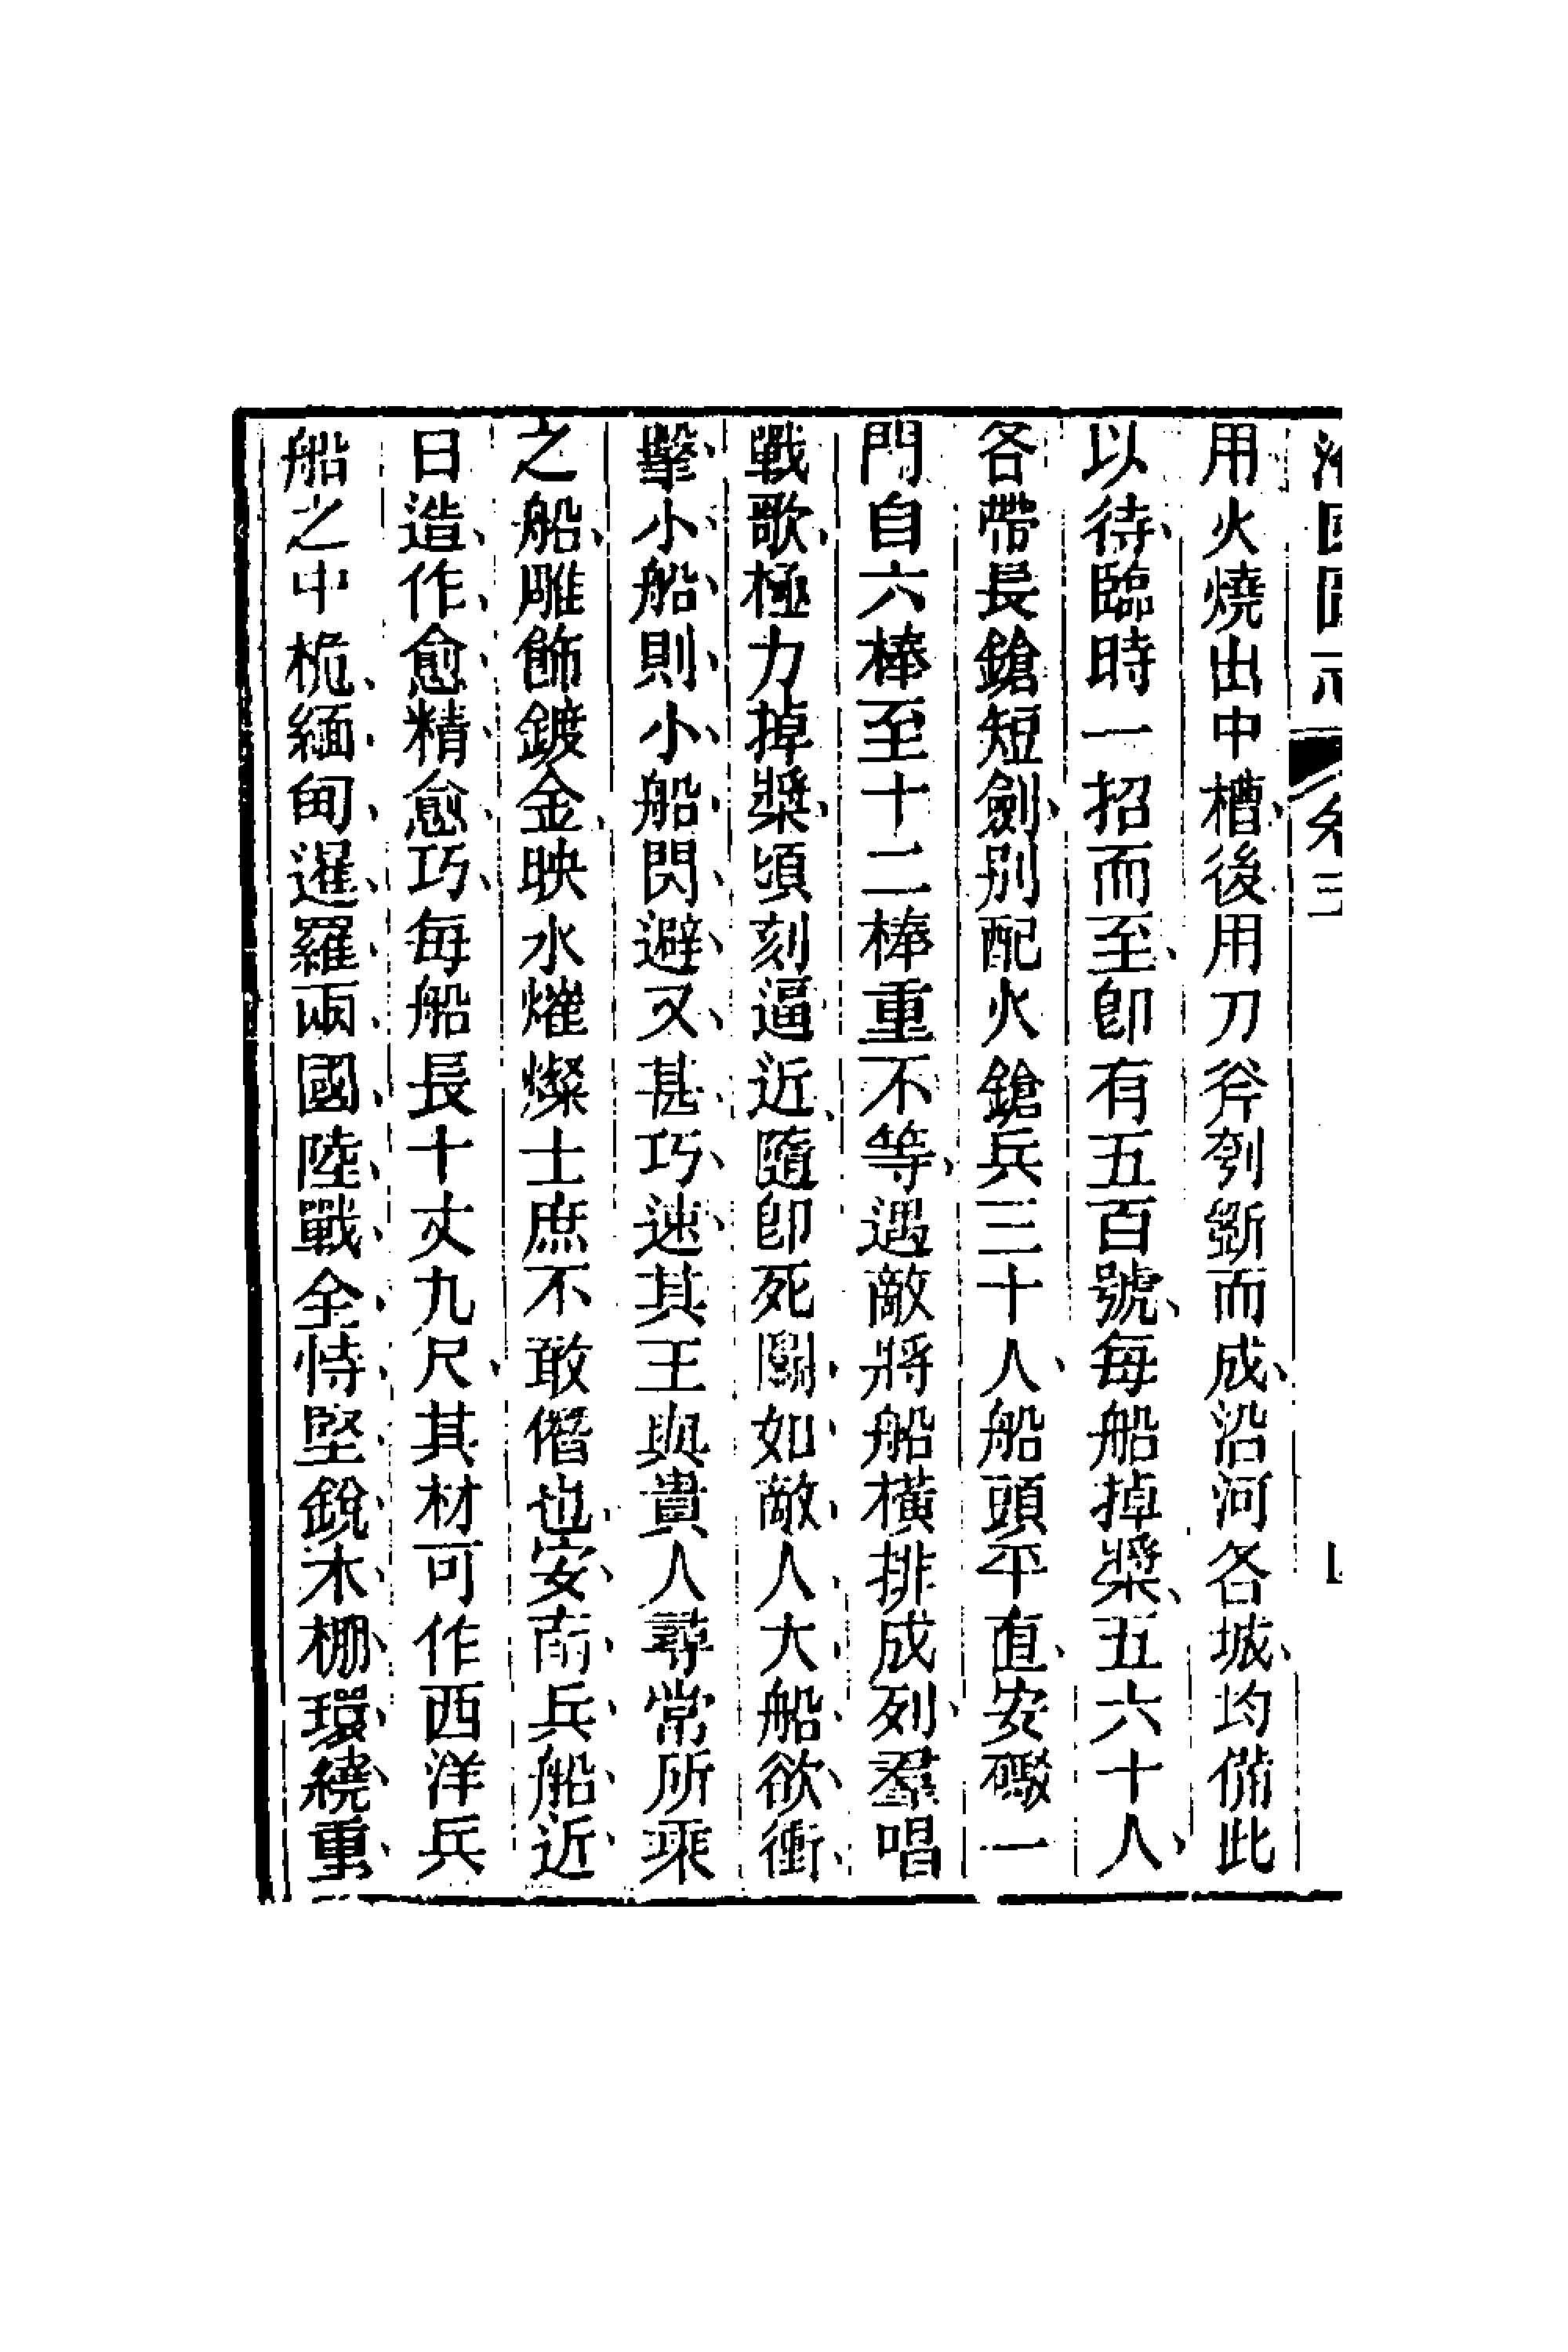 用火燒出中槽後用刀斧刳斲而成沿河各城均備此
以待臨時一招而至卽有五百號每船掉槳五六十人
各帶長鎗短劍别配火鎗兵三十人船頭平直安礮一
門自六棒至十二棒重不等遇敵將船橫排成列羣唱
戰歌極力掉槳頃刻逼近隨卽死鬭如敵人大船欲衝
擊小船則小船閃避又甚巧速其王與貴人尋常所乘
之船雕飾鍍金映水燿燦士庶不敢僭也安南兵船近
日造作愈精愈巧每船長十丈九尺其材可作西洋兵
船之中桅緬甸暹羅兩國陸戰全恃堅銳木棚環繞重